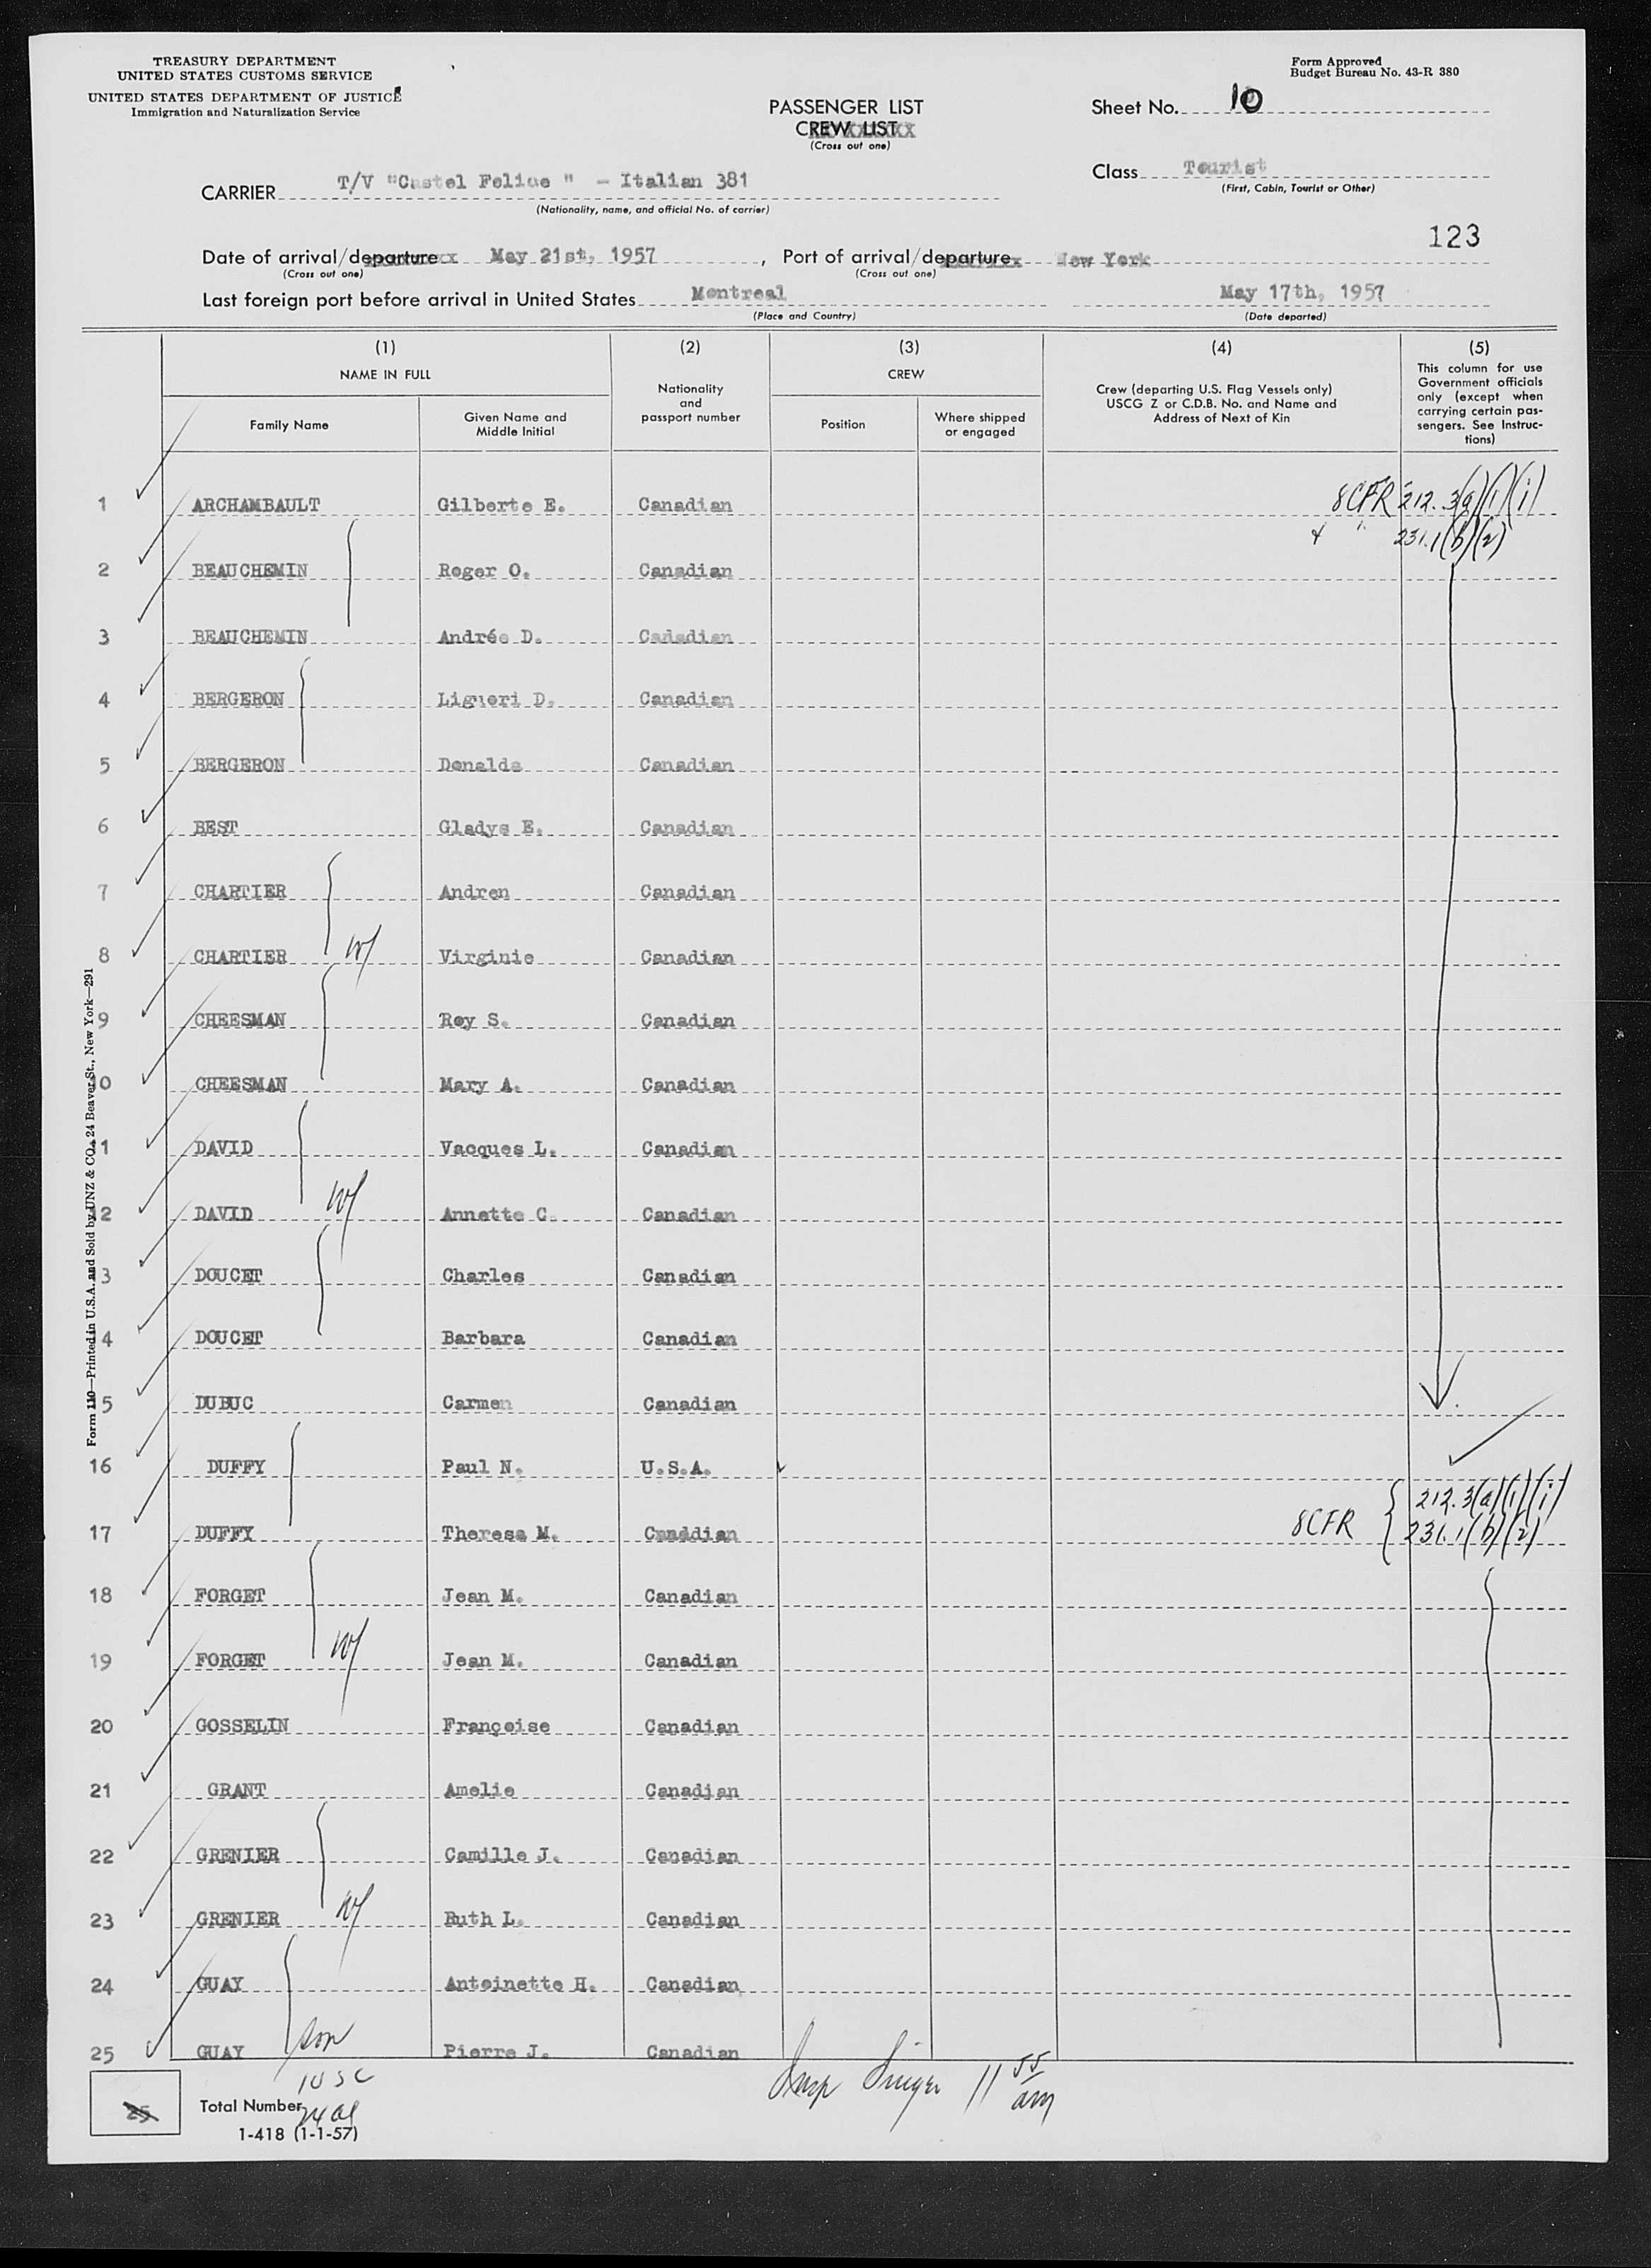 TREASURY DEPARTMENT
UNITED STATES CUSTOMS SERVICE
UNITED STATES DEPARTMENT OF JUSTICE
Immigration and Naturalization Service
Form Approved
Budget Bureau No. 43-R 380
PASSENGER LIST
CREW LIST
(Cross out one)
Sheet No. 10
Class Tourist
(First, Cabin, Tourist or Other)
CARRIER T/V "Castel Felice " - Italian 381
(Nationality, name, and official No. of carrier)
123
Date of arrival/departure May 21st, 1957, Port of arrival/departure New York
(Cross out one) (Cross out one)
Last foreign port before arrival in United States Montreal May 17th, 1957
(Place and Country) (Date departed)
(1) (2) (3) (4) (5)
NAME IN FULL
Family Name
Given Name and Middle Initial
Nationality and passport number
CREW
Position
Where shipped or engaged
Crew (departing U.S. Flag Vessels only) USCG Z or C.D.B. No. and Name and Address of Next of Kin
This column for use Government officials only (except when carrying certain passengers. See Instructions)
1 ARCHAMBAULT Gilberte E. Canadian 8CFR 212.3(a)(1)(i)
& " 231.1(b)(2)
2 BEAUCHEMIN Roger O. Canadian
3 BEAUCHEMIN Andrée D. Canadian
4 BERGERON Liguori D. Canadian
5 BERGERON Donalda Canadian
6 BEST Gladys E. Canadian
7 CHARTIER Andren Canadian
8 CHARTIER W/ Virginie Canadian
9 CHEESMAN Roy S. Canadian
0 CHEESMAN Mary A. Canadian
1 DAVID Vacques L. Canadian
2 DAVID W/ Annette C. Canadian
3 DOUCET Charles Canadian
4 DOUCET Barbara Canadian
5 DUBUC Carmen Canadian
16 DUFFY Paul N. U.S.A.
17 DUFFY Theresa M. Canadian 8CFR { 212.3(a)(1)(i)
231.1(b)(2)
18 FORGET Jean M. Canadian
19 FORGET W/ Jean M. Canadian
20 GOSSELIN Françoise Canadian
21 GRANT Amelie Canadian
22 GRENIER Camille J. Canadian
23 GRENIER W/ Ruth L. Canadian
24 GUAY Antoinette H. Canadian
25 GUAY son Pierre J. Canadian
Form 110—Printed in U.S.A. and Sold by UNZ & CO., 24 Beaver St., New York—291
1 USC
25 Total Number 24 al
Insp Singer 11 55 am
1-418 (1-1-57)